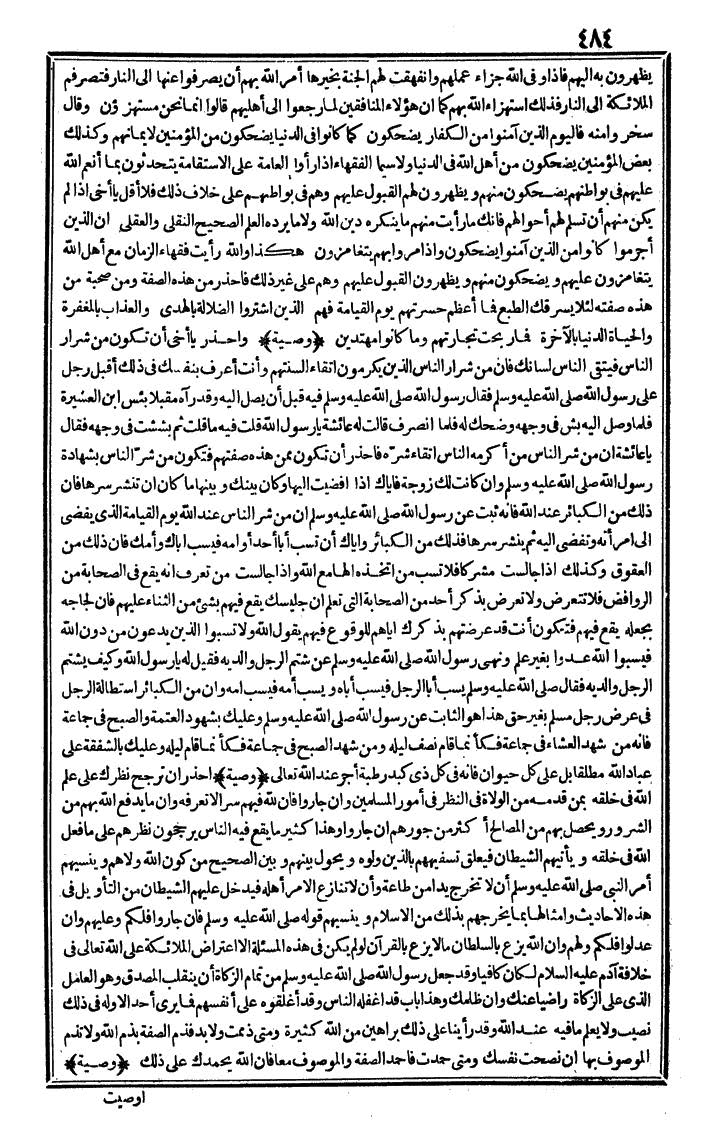 ٤٨٤
يظهرون به اليهم فاذا وفى الله جزاء عملهم وانفهقت لهم الجنة بخيرها أمر الله بهم أن يصرفوا عنها الى النار فتصرفهم
الملائكة الى النار فذلك استهزاء الله بهم كما ان هؤلاء المنافقين لما رجعوا الى أهليهم قالوا انما نحن مستهزؤن وقال
سخروا منه فاليوم الذين آمنوا من الكفار يضحكون كما كانوا فى الدنيا يضحكون من المؤمنين لايمانهم وكذلك
بعض المؤمنين يضحكون من أهل الله فى الدنيا ولا سيما الفقهاء اذا رأوا العامة على الاستقامة يتحدثون بما أنعم الله
عليهم فى بواطنهم يضحكون منهم ويظهرون لهم القبول عليهم وهم فى بواطنهم على خلاف ذلك فلا أقل يا أخى اذا لم
يكن منهم أن تسلم لهم أحوالهم فانك ما رأيت منهم ما ينكره دين الله ولا ما يرده العلم الصحيح النقلى والعقلى ان الذين
أجرموا كانوا من الذين آمنوا يضحكون واذا مروا بهم يتغامزون هكذا والله رأيت فقهاء الزمان مع أهل الله
يتغامزون عليهم ويضحكون منهم ويظهرون القبول عليهم وهم على غير ذلك فاحذر من هذه الصفة ومن صحبة من
هذه صفته لئلا يسرقك الطبع فما أعظم حسرتهم يوم القيامة فهم الذين اشتروا الضلالة بالهدى والعذاب بالمغفرة
والحياة الدنيا بالآخرة فما ربحت تجارتهم وما كانوا مهتدين ﴿وصية﴾ واحذر يا أخى أن تكون من شرار
الناس فيتقى الناس لسانك فان من شرار الناس الذين يكرمون اتقاء السنتهم وأنت أعرف بنفسك فى ذلك أقبل رجل
على رسول الله صلى الله عليه وسلم فقال رسول الله صلى الله عليه وسلم فيه قبل أن يصل اليه وقد رآه مقبلا بئس ابن العشيرة
فلما وصل اليه بش فى وجهه وضحك له فلما انصرف قالت له عائشة يا رسول الله قلت فيه ما قلت ثم بششت فى وجهه فقال
يا عائشة ان من شر الناس من أكرمه الناس اتقاء شره فاحذر أن تكون ممن هذه صفتهم فتكون من شر الناس بشهادة
رسول الله صلى الله عليه وسلم وان كانت لك زوجة فاياك اذا افضيت اليها وكان بينك وبينها ما كان ان تنشر سرها فان
ذلك من الكبائر عند الله فانه ثبت عن رسول الله صلى الله عليه وسلم ان من شر الناس عند الله يوم القيامة الذى يفضى
الى امرأته وتفضى اليه ثم ينشر سرها فذلك من الكبائر واياك أن تسب أبا أحد أو أمه فيسب أباك وأمك فان ذلك من
العقوق وكذلك اذا جالست مشركا فلا تسب من اتخذه الها مع الله واذا جالست من تعرف انه يقع فى الصحابة من
الروافض فلا تتعرض ولا تعرض بذكر أحد من الصحابة التى تعلم ان جليسك يقع فيهم بشئ من الثناء عليهم فان لجاجه
يجعله يقع فيهم فتكون أنت قد عرضتهم بذكرك اياهم للوقوع فيهم يقول الله ولا تسبوا الذين يدعون من دون الله
فيسبوا الله عدوا بغير علم ونهى رسول الله صلى الله عليه وسلم عن شتم الرجل والديه فقيل له يا رسول الله وكيف يشتم
الرجل والديه فقال صلى الله عليه وسلم يسب أبا الرجل فيسب أباه ويسب أمه فيسب امه وان من الكبائر استطالة الرجل
فى عرض رجل مسلم بغير حق هذا هو الثابت عن رسول الله صلى الله عليه وسلم وعليك بشهود العتمة والصبح فى جماعة
فانه من شهد العشاء فى جماعة فكأنما قام نصف ليله ومن شهد الصبح فى جماعة فكأنما قام ليله وعليك بالشفقة على
عباد الله مطلقا بل على كل حيوان فانه فى كل ذى كبد رطبة أجر عند الله تعالى ﴿وصية﴾ احذر ان ترجح نظرك على علم
الله فى خلقه بمن قدمه من الولاة فى النظر فى أمور المسلمين وان جاروا فان لله فيهم سرا لا تعرفه وان ما يدفع الله بهم من
الشرور ويحصل بهم من المصالح أكثر من جورهم ان جاروا وهذا كثير ما يقع فيه الناس يرجحون نظرهم على ما فعل
الله فى خلقه ويأتيهم الشيطان فيعلق تسفيههم بالذين ولوه ويحول بينهم وبين الصحيح من كون الله ولاهم وينسيهم
أمر النبى صلى الله عليه وسلم أن لا تخرج يدا من طاعة وأن لا تنازع الامر أهله فيدخل عليهم الشيطان من التأويل فى
هذه الاحاديث وامثالها بما يخرجهم بذلك من الاسلام وينسيهم قوله صلى الله عليه وسلم فان جاروا فلكم وعليهم وان
عدلوا فلكم ولهم وان الله يزع بالسلطان ما لا يزع بالقرآن ولو لم يكن فى هذه المسئلة الا اعتراض الملائكة على الله تعالى فى
خلافة آدم عليه السلام لكان كافيا وقد جعل رسول الله صلى الله عليه وسلم من تمام الزكاة أن ينقلب المصدق وهو العامل
الذى على الزكاة راضيا عنك وان ظلمك وهذا باب قد اغفله الناس وقد أغلقوه على أنفسهم فما يرى أحد الا وله فى ذلك
نصيب ولا يعلم ما فيه عند الله وقد رأينا على ذلك براهين من الله كثيرة ومتى ذممت ولا بد فذم الصفة بذم الله ولا تذم
الموصوف بها ان نصحت نفسك ومتى حمدت فاحمد الصفة والموصوف معا فان الله يحمدك على ذلك ﴿وصية﴾
اوصيت